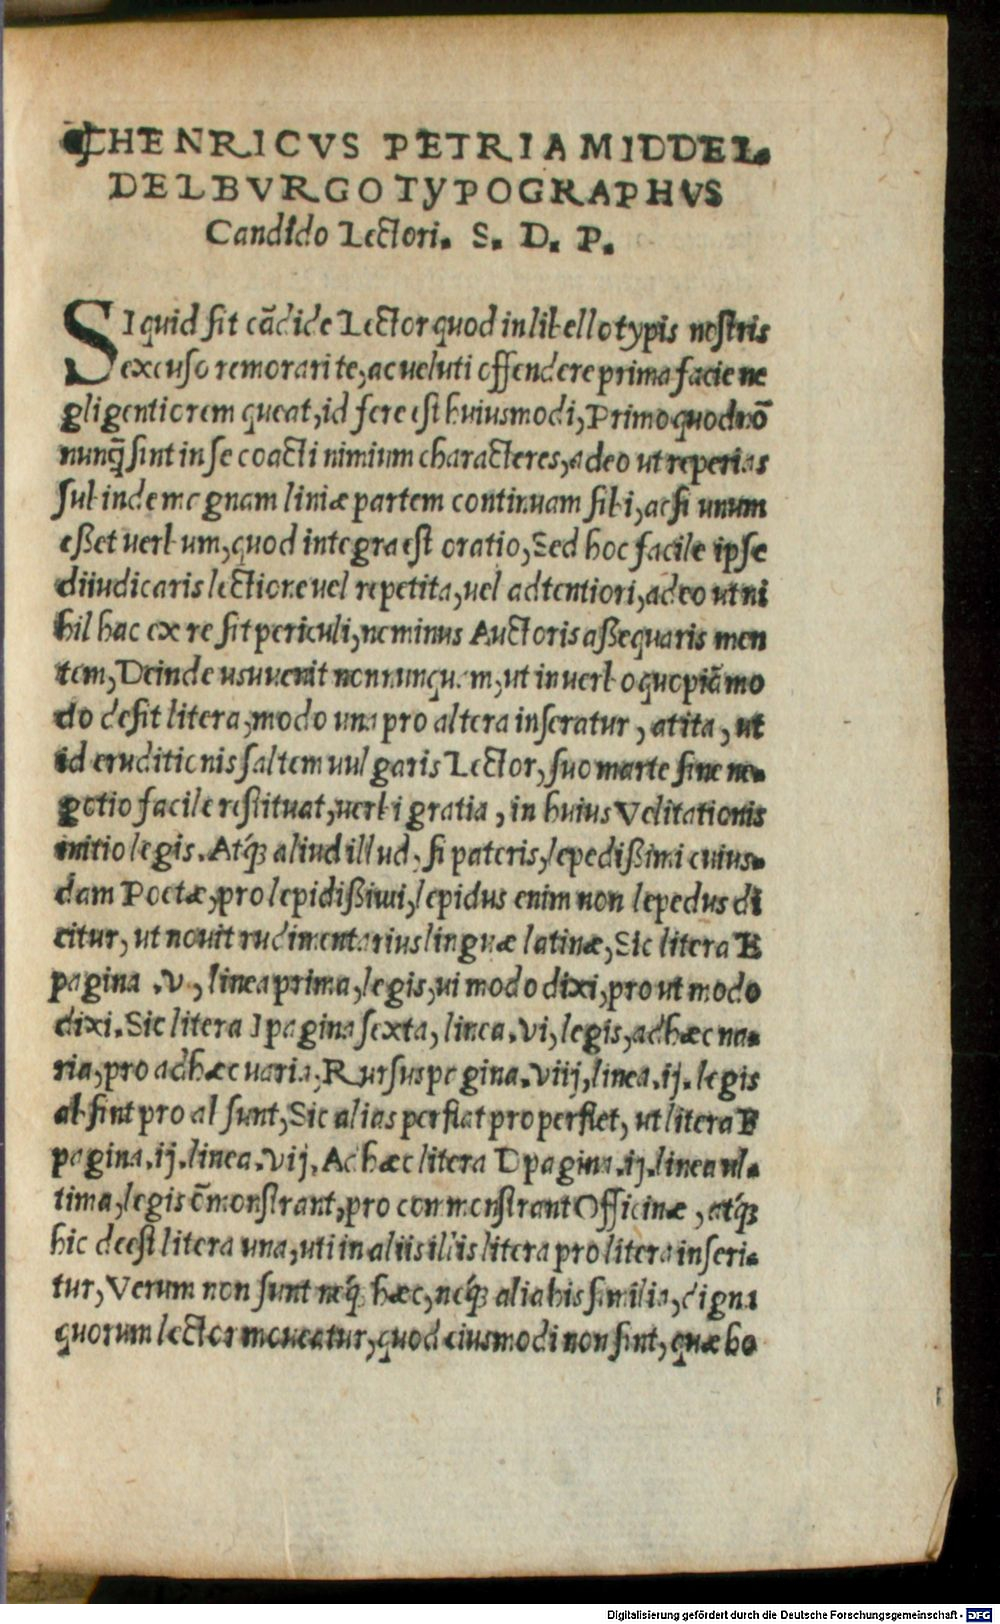 HENRICVS PETRI A MIDDEL-
DELBVRGO TYPOGRAPHVS
Candido Lectori. S. D. P.
SI quid sit cãdide Lector quod in libello typis nostris
excuso remorari te, ac veluti offendere prima facie ne
gligentiorem queat, id fere est huiusmodi, Primo quod nõ
nunq̃ sint in se coacti nimium characteres, adeo ut reperias
subinde magnam liniæ partem continuam sibi, ac si unum
eßet verbum, quod integra est oratio, Sed hoc facile ipse
diiudicaris lectione vel repetita, vel adtentiori, adeo ut ni
hil hac ex re sit periculi, ne minus Auctoris aßequaris men
tem, Deinde usuvenit nonnunquam, ut in verbo quopiã mo
do desit litera, modo una pro altera inseratur, at ita, ut
id eruditionis saltem uulgaris Lector, suo marte sine ne-
gotio facile restituat, verbi gratia, in huius Velitationis
initio legis. Atq́ꝫ aliud illud, si pateris, lepedißimi cuius-
dam Poetæ, pro lepidißimi, lepidus enim non lepedus di
citur, ut novit rudimentarius linguæ latinæ, Sic litera B
pagina .V, linea prima, legis, ui modo dixi, pro ut modo
dixi. Sic litera I pagina sexta, linea .vi, legis, ad hæc na-
ria, pro ad hæc varia, Rursus pagina .viij, linea .ij. legis
ab sint pro ab sunt, Sic alias perstat pro perstet, ut litera B
pagina .ij. linea .vij. Ad hæc litera D pagina .ij. linea ul-
tima, legis cõmonstrant, pro conmonstrant Officinæ, atq́ꝫ
hic deest litera una, uti in aliis illis litera pro litera inseri-
tur, Verum non sunt neq́ꝫ hæc, neq́ꝫ alia his similia, digna
quorum lector moneatur, quod eiusmodi non sint, quæ ho
Digitalisierung gefördert durch die Deutsche Forschungsgemeinschaft - DFG